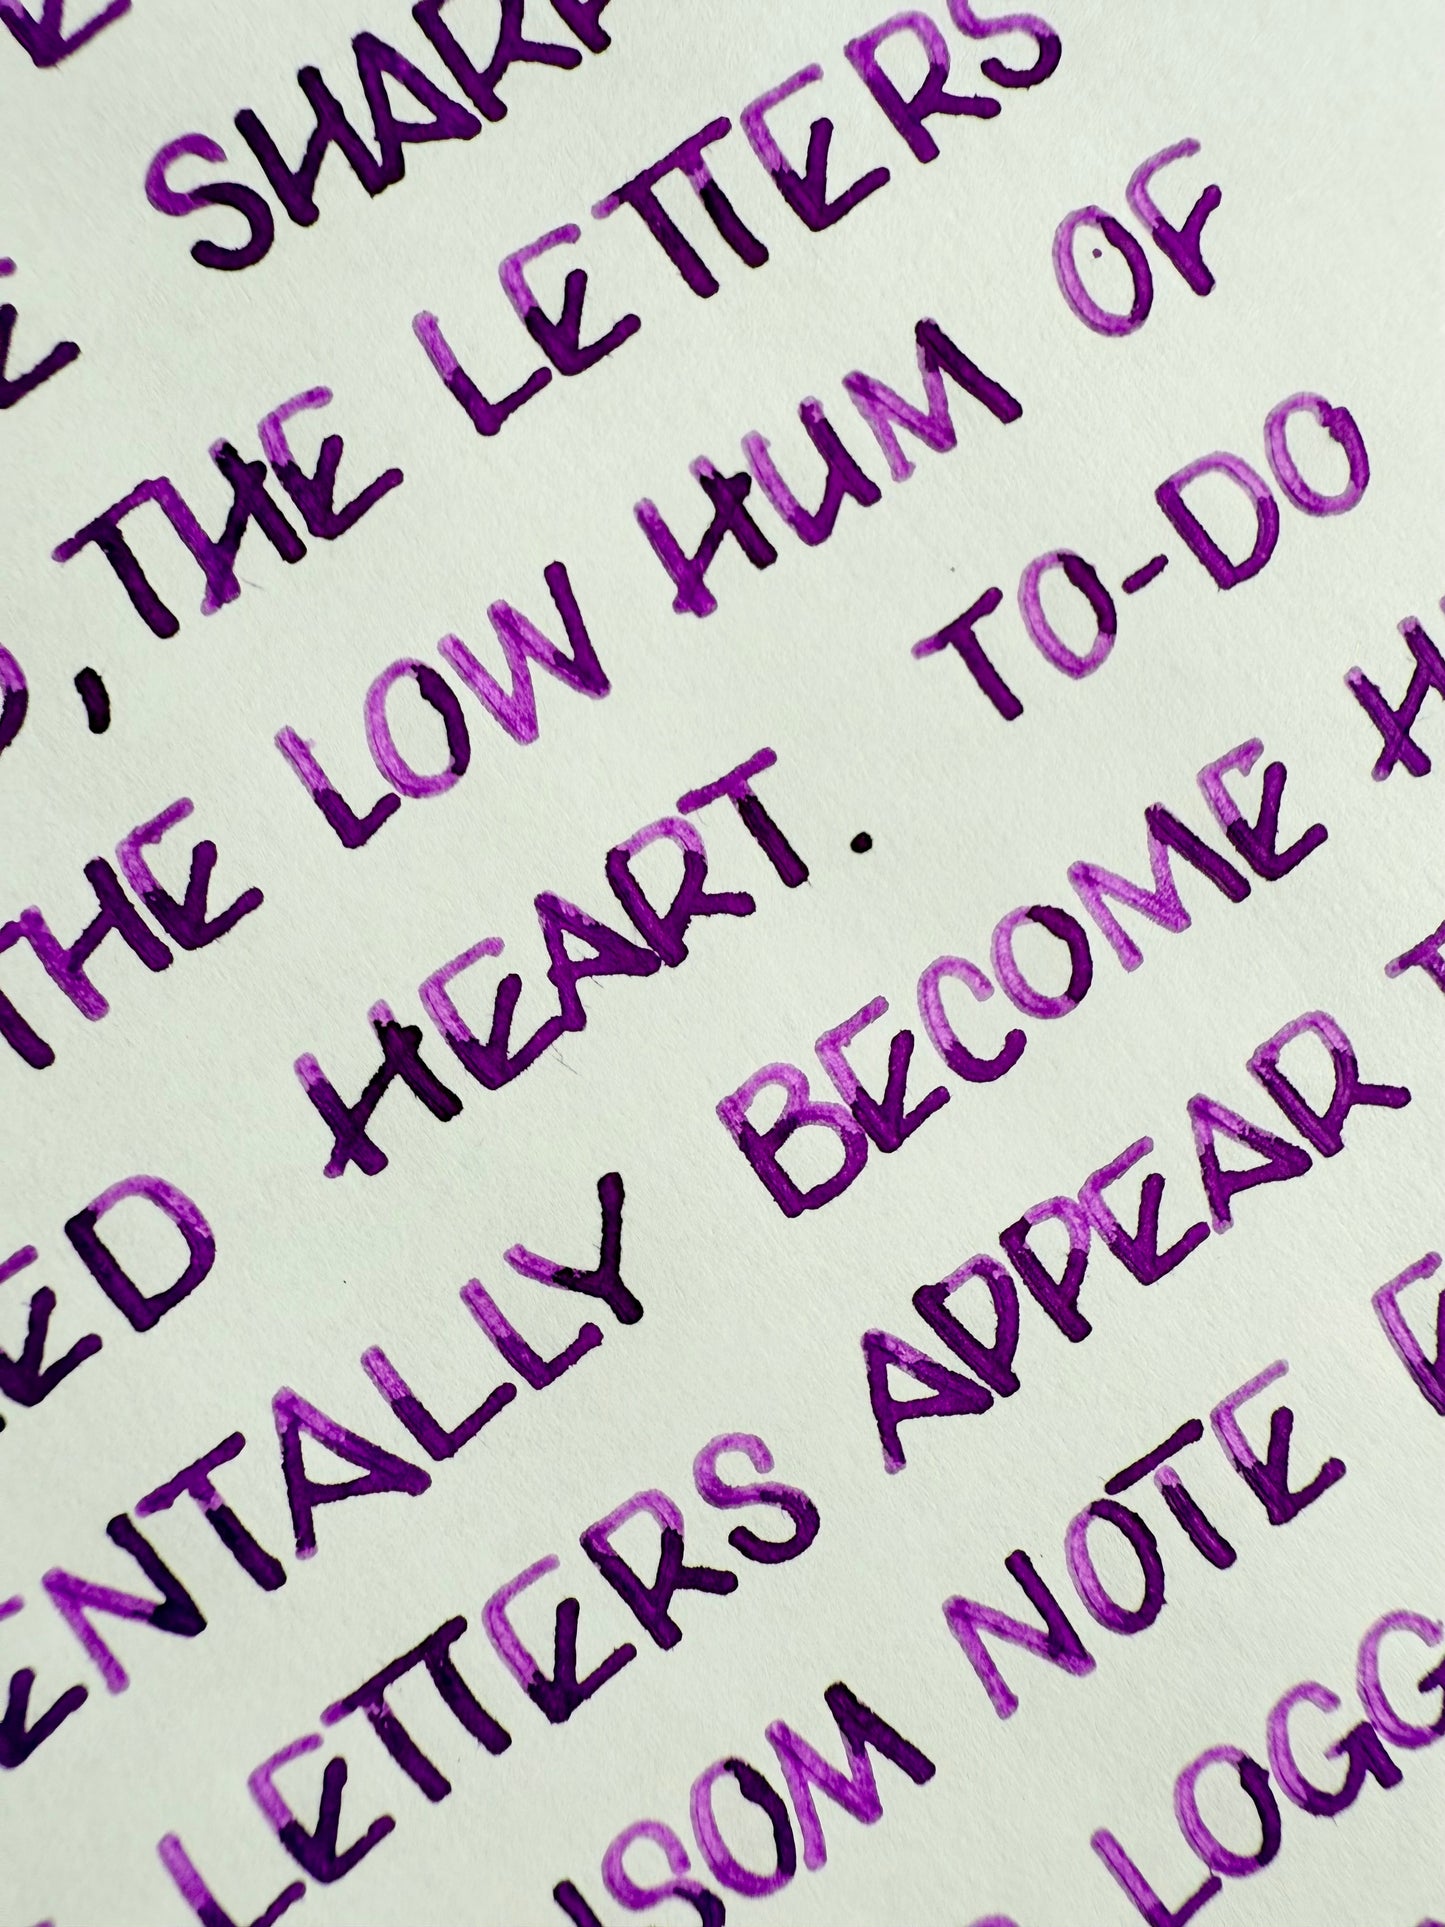 SHARP
D, THE LETTERS
THE LOW HUM OF
ED HEART. TO-DO
ENTALLY BECOME H
LETTERS APPEAR T
SOM NOTE
LOGG